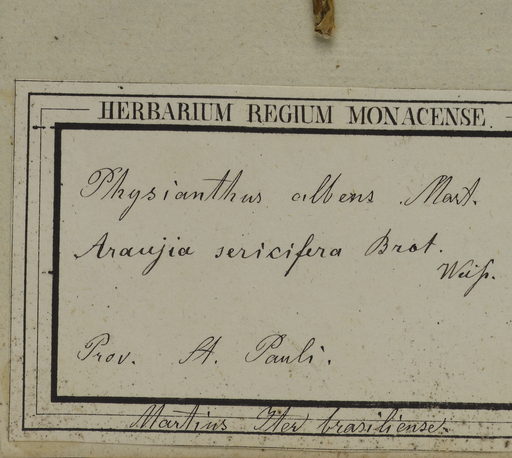 HERBARIUM REGIUM MONACENSE.
Physianthus albens Mart.
Araujia sericifera Brot.
Prov. St. Pauli.
Martius Iter brasiliense.